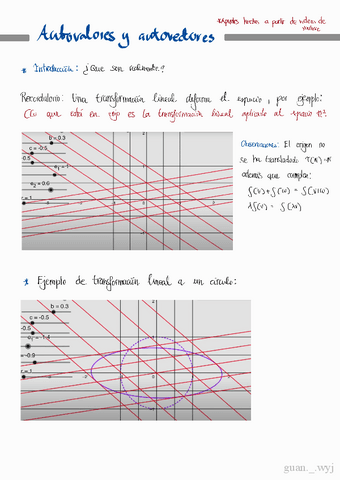 Apuntes hechos a partir de videos de
Autovalores y autovectores
Introducción: ¿Que son autovalores?
Recordatorio: Una transformación lineal deforma el espacio, por ejemplo:
(Lo que está en rojo es la transformación lineal aplicada al espacio R².
b = 0.3
c = -0.5
-0.5
e₂ = 0.6
c = 1
Observaciones: El origen no
se ha trasladado
además que cumple:
f(v)+f(w) = f(v+w)
λf(v) = f(λv)
Ejemplo de transformación lineal a un círculo:
b = 0.3
c = -0.5
-0.5
e₁ = -1.4
= -0.9
c = 1
guan._.wyj